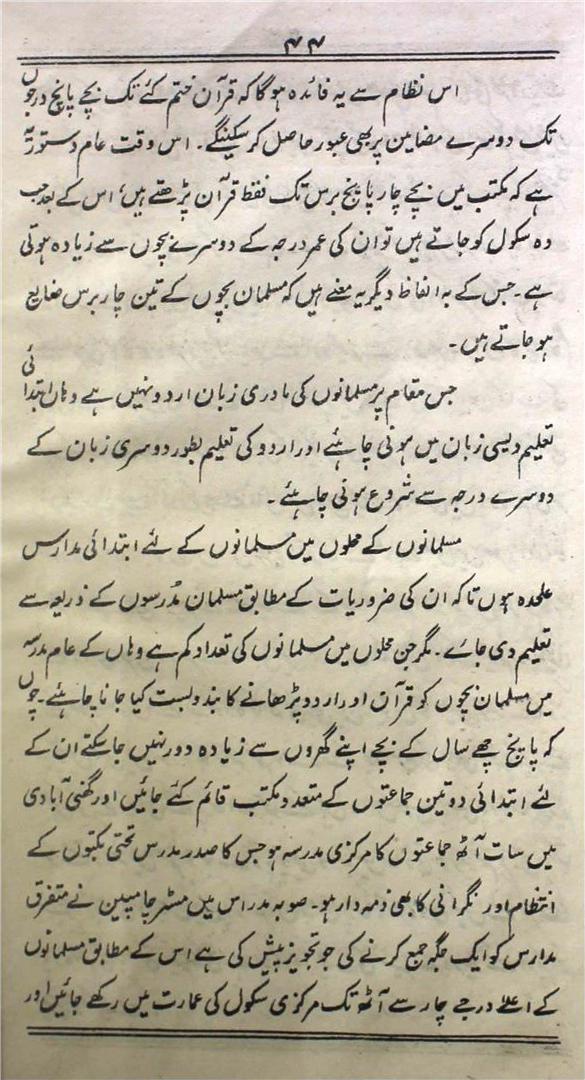 ۴۴
اس نظام سے یہ فائدہ ہوگا کہ قرآن ختم کئے تک بچے پانچ درجوں
تک دوسرے مضامین پر بھی عبور حاصل کر سکینگے۔ اس وقت عام دستور یہ
ہے کہ مکتب میں بچے چار پانچ برس تک فقط قرآن پڑھتے ہیں، اس کے بعد جب
وہ سکول کو جاتے ہیں تو ان کی عمر درجہ کے دوسرے بچوں سے زیادہ ہوتی
ہے۔ جس کے بہ الفاظ دیگر یہ معنے ہیں کہ مسلمان بچوں کے تین چار برس ضایع
ہو جاتے ہیں۔
جس مقام پر مسلمانوں کی مادری زبان اردو نہیں ہے وہاں ابتدائی
تعلیم دیسی زبان میں ہونی چاہئے اور اردو کی تعلیم بطور دوسری زبان کے
دوسرے درجہ سے شروع ہونی چاہئے۔
مسلمانوں کے محلوں میں مسلمانوں کے لئے ابتدائی مدارس
علحدہ ہوں تاکہ ان کی ضروریات کے مطابق مسلمان مُدرسوں کے ذریعہ سے
تعلیم دی جائے۔ مگر جن محلوں میں مسلمانوں کی تعداد کم ہے وہاں کے عام مدرسہ
میں مسلمان بچوں کو قرآن اور اردو پڑھانے کا بندوبست کیا جانا چاہئے۔ چوں
کہ پانچ چھے سال کے بچے اپنے گھروں سے زیادہ دور نہیں جا سکتے ان کے
لئے ابتدائی دو تین جماعتوں کے متعدد مکتب قائم کئے جائیں اور گھنی آبادی
میں سات آٹھ جماعتوں کا مرکزی مدرسہ ہو جس کا صدر مدرس تحتی مکتبوں کے
انتظام اور نگرانی کا بھی ذمہ دار ہو۔ صوبہ مدراس میں مسٹر چامپین نے متفرق
مدارس کو ایک جگہ جمع کرنے کی جو تجویز پیش کی ہے اس کے مطابق مسلمانوں
کے اعلےٰ درجے چار سے آٹھ تک مرکزی سکول کی عمارت میں رکھے جائیں اور